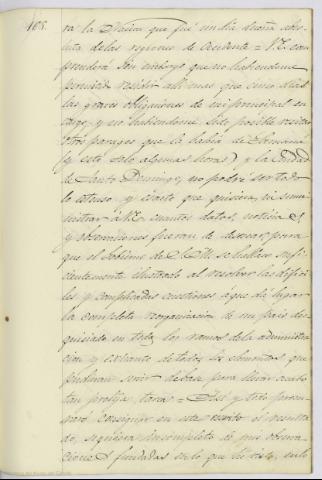 168.
ra la Nacion que fué un dia dueña abso-
luta de las regiones de Occidente = V.E. com-
prenderá sin embargo que no habiendome
permitido residir allí mas que cinco dias
las graves obligaciones de mi principal en-
cargo, y no habiendome sido posible visitar
otros parages que la bahía de Samaná
(y esto solo algunas horas) y la Ciudad
de Santo Domingo, no podré ser todo
lo estenso y exacto que quisiera, ni sumi-
nistrar á V.E. cuantos datos, noticias
y observaciones fueran de desear, para
que el Gobierno de S.M. se hallare sufi-
cientemente ilustrado al resolver las difici-
les y complicadas cuestiones á que dá lugar
la completa reorganizacion de un pais des-
quiciado en todos los ramos de la administra-
cion y exhausto de todos los elementos que
pudieran servir de base para llevar á cabo
tan prolija tarea = Así y todo procu-
raré consignar en este escrito el resulta-
do, siquiera incompleto de mis observa-
ciones fundadas en lo que he visto, en lo